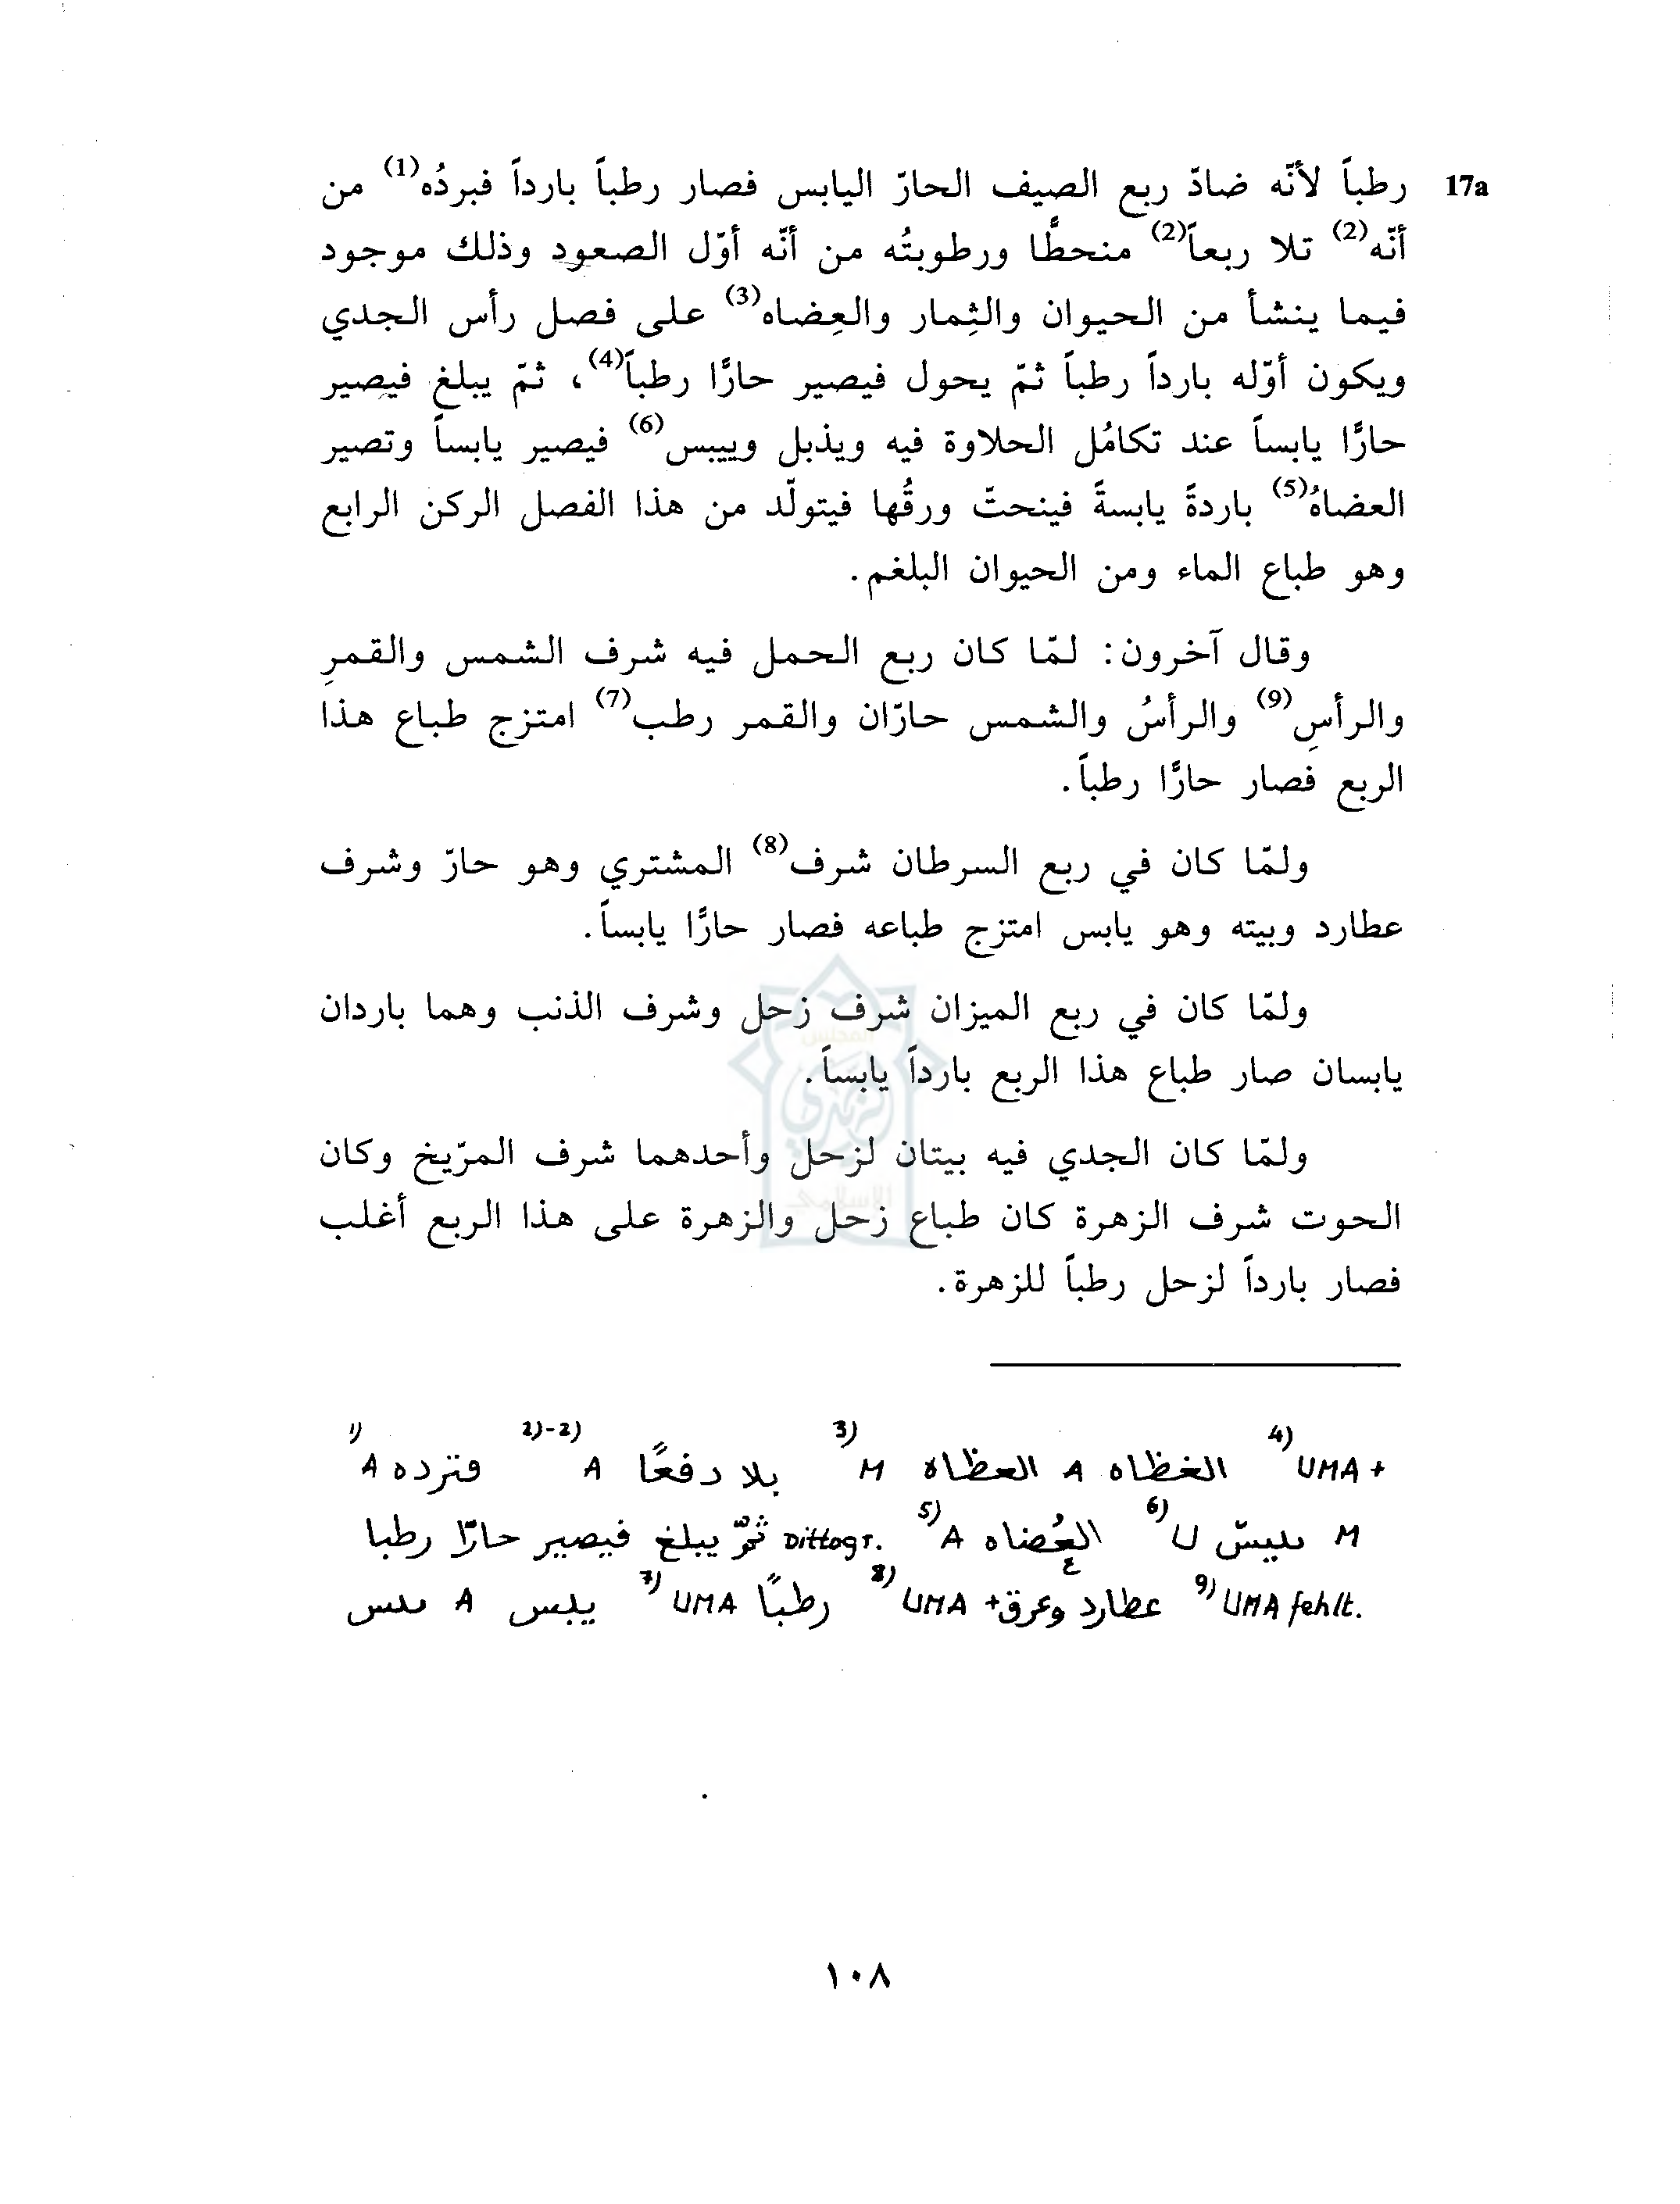 17a رطباً لأنّه ضادّ ربع الصيف الحارّ اليابس فصار رطباً بارداً فبردُه(1) من
أنّه(2) تلا ربعاً(2) منحطًّا ورطوبتُه من أنّه أوّل الصعود وذلك موجود
فيما ينشأ من الحيوان والثِمار والعِضاه(3) على فصل رأس الجدي
ويكون أوّله بارداً رطباً ثمّ يحول فيصير حارًّا رطباً(4)، ثمّ يبلغ فيصير
حارًّا يابساً عند تكامُل الحلاوة فيه ويذبل وييبس(6) فيصير يابساً وتصير
العضاهُ(5) باردةً يابسةً فينحتّ ورقُها فيتولّد من هذا الفصل الركن الرابع
وهو طباع الماء ومن الحيوان البلغم.
وقال آخرون: لمّا كان ربع الحمل فيه شرف الشمس والقمرِ
والرأسِ(9) والرأسُ والشمس حارّان والقمر رطب(7) امتزج طباع هذا
الربع فصار حارًّا رطباً.
ولمّا كان في ربع السرطان شرف(8) المشتري وهو حارّ وشرف
عطارد وبيته وهو يابس امتزج طباعه فصار حارًّا يابساً.
ولمّا كان في ربع الميزان شرف زحل وشرف الذنب وهما باردان
يابسان صار طباع هذا الربع بارداً يابساً.
ولمّا كان الجدي فيه بيتان لزحل وأحدهما شرف المرّيخ وكان
الحوت شرف الزهرة كان طباع زحل والزهرة على هذا الربع أغلب
فصار بارداً لزحل رطباً للزهرة.
1) A فترده 2)-2) A بلا دفعًا 3) M العظاه A الغظاه 4) UMA+
ثمّ يبلغ فيصير حارّا رطبا Dittogr. 5) A العُضاه 6) U M
A يبس 7) UMA رطبًا 8) UMA + عطارد وعرق 9) UMA fehlt.
١٠٨